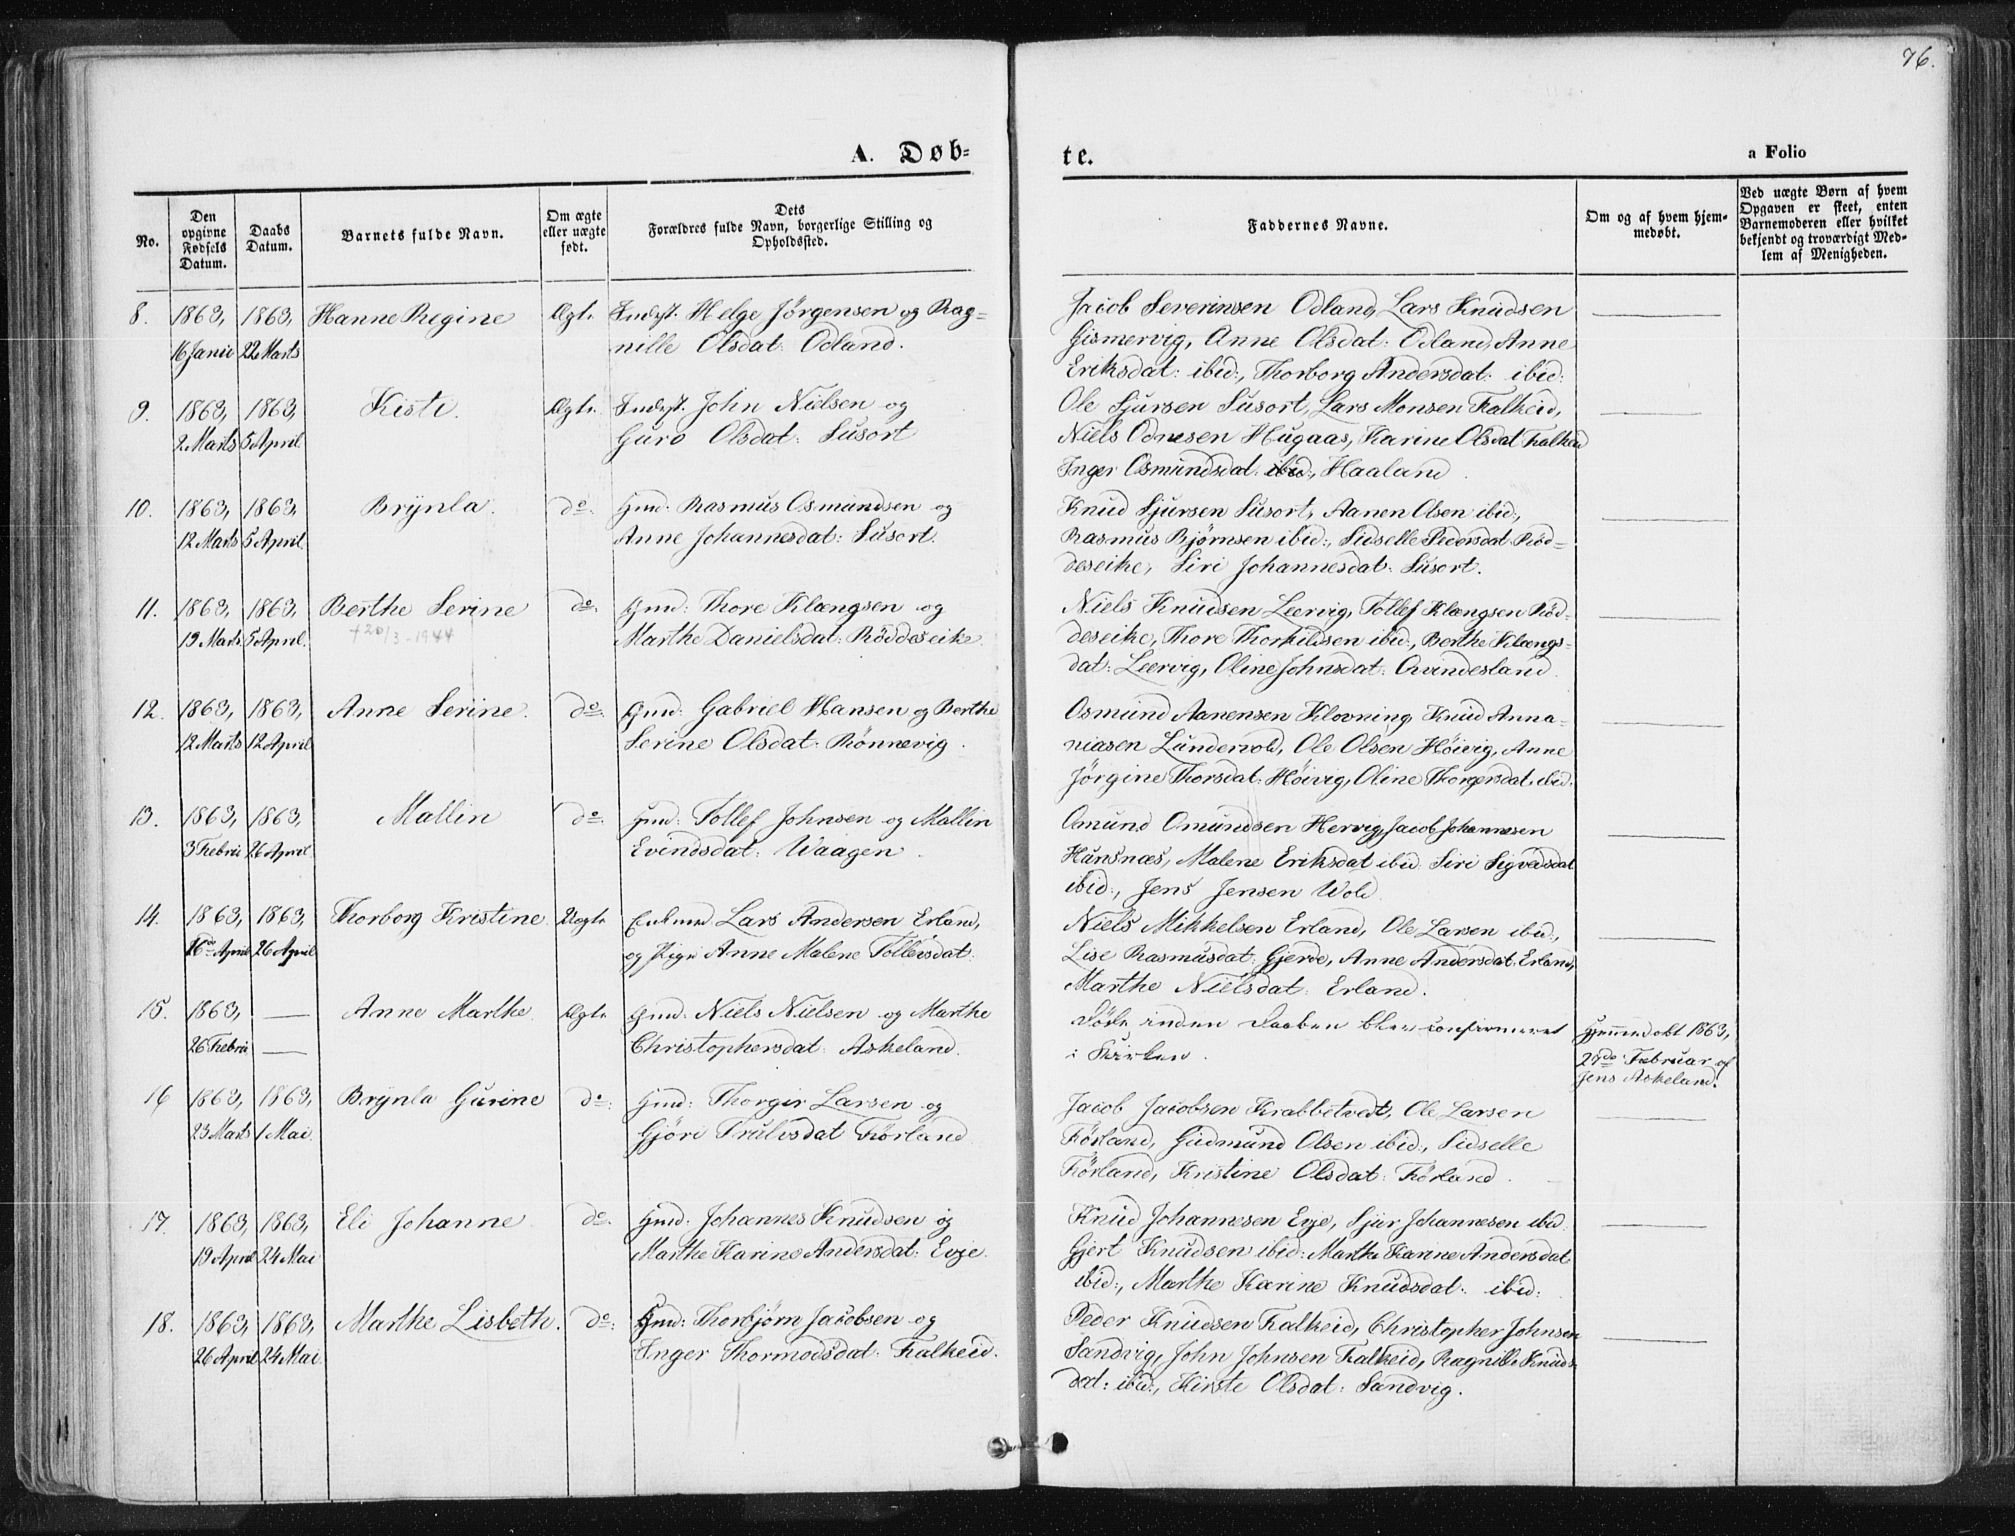 76.
A. Døb=
te.
a Folio
No.
Den
opgivne
Fødsels
Datum.
Daabs
Datum.
Barnets fulde Navn.
Om ægte
eller uægte
født.
Dets
Forældres fulde Navn, borgerlige Stilling og
Opholdssted.
Faddernes Navne.
Om og af hvem hjem-
medøbt.
Ved uægte Børn af hvem
Opgaven er skeet, enten
Barnemoderen eller hvilket
bekjendt og troværdigt Med-
lem af Menigheden.
8. 1863, 1863, Hanne Regine Ægte Inderst. Helge Jörgensen og Rag=
16 Janu 22 Marts nille Olsdat: Odland.
Jacob Severinsen Odland, Lars Knudsen
Gismervig, Anne Olsdat: Odland, Anne
Eriksdat: ibid:, Thorborg Andersdat: ibid:
9. 1863, 1863, Kiste. Ægte Inderst. John Nielsen og
2 Marts 5 April Guro Olsdat: Susort
Ole Sjursen Susort, Lars Monsen Falkeid,
Niels Odnesen Hugaas, Karine Olsdat Falkeid
Inger Osmundsdat: ibid, Haaland.
10. 1863, 1863, Brynla. do. Gmd: Rasmus Osmundsen og
12 Marts 5 April Anne Johannesdat: Susort.
Knud Sjursen Susort, Aanen Olsen ibid:,
Rasmus Bjørnsen ibid:, Sidselle Pedersdat Röd=
deseike, Siri Johannesdat: Susort.
11. 1863, 1863, Berthe Serine do. Gmd: Thore Klængsen og
+20/3-1944
19 Marts 5 April. Marthe Danielsdat: Röddeseike.
Niels Knudsen Leervig, Tollef Klængsen Röd=
deseike, Thore Thorkildsen ibid:, Berthe Klængs=
dat: Leervig, Oline Johnsdat: Qvindesland.
12. 1863, 1863, Anne Serine. do. Gmd: Gabriel Hansen og Berthe
12 Marts 12 April Serine Olsdat: Rönnevig.
Osmund Aanensen Klovning, Knud Anna=
niasen Lundervold, Ole Olsen Höivig, Anne
Jörgine Thorsdat: Höivig, Oline Thorgersdat. ibid:
13. 1863, 1863, Mallin do. Gmd: Tollef Johnsen og Mallin
3 Febru 26 April Evindsdat: Waagen.
Omund Omundsen Hervig, Jacob Johannesen
Hunsnæs, Malene Eriksdat ibid. Siri Sigvdsdat
ibid:, Jens Jensen Wold.
14. 1863, 1863, Thorborg Kristine. Uægte Enkemd. Lars Andersen Erland,
16de April 26 April og Pige Anne Malene Tollefsdat:
Niels Mikkelsen Erland, Ole Larsen ibid:,
Lise Rasmusdat: Gjerde, Anne Andersdat: Erland,
Marthe Nielsdat: Erland.
15. 1863, — Anne Marthe. Ægte Gmd: Niels Nielsen og Marthe
26 Febru — Christophersdat: Askeland.
Døde inden Daaben blev confirmeret
i Kirken.
Hjemmedøbt 1863,
27de Februar af
Jens Askeland.
16 1863, 1863, Brynla Gurine do: Gmd: Thorgir Larsen og
23 Marts 1 Mai. Gjöri Trulsdat Förland
Jacob Jacobsen Krabbetvedt, Ole Larsen
Förland, Gudmund Olsen ibid:, Sidselle
Förland, Kristine Olsdat: Förland.
17. 1863, 1863, Eli Johanne do. Gmd: Johannes Knudsen og
19 April 24 Mai Marthe Karine Andersdat: Evje.
Knud Johannesen Evje, Sjur Johannesen ibid.
Gjert Knudsen ibid: Marthe Karine Andersdat
ibid:, Marthe Karine Knudsdat: ibid:
18. 1863, 1863, Marthe Lisbeth. do: Gmd: Thorbjørn Jacobsen og
26 April 24 Mai. Inger Thormodsdat: Falkeid.
Peder Knudsen Falkeid, Christopher Johnsen
Sandvig, John Johnsen Falkeid, Ragnille Knuds=
dat: ibid:, Kirste Olsdat: Sandvig.